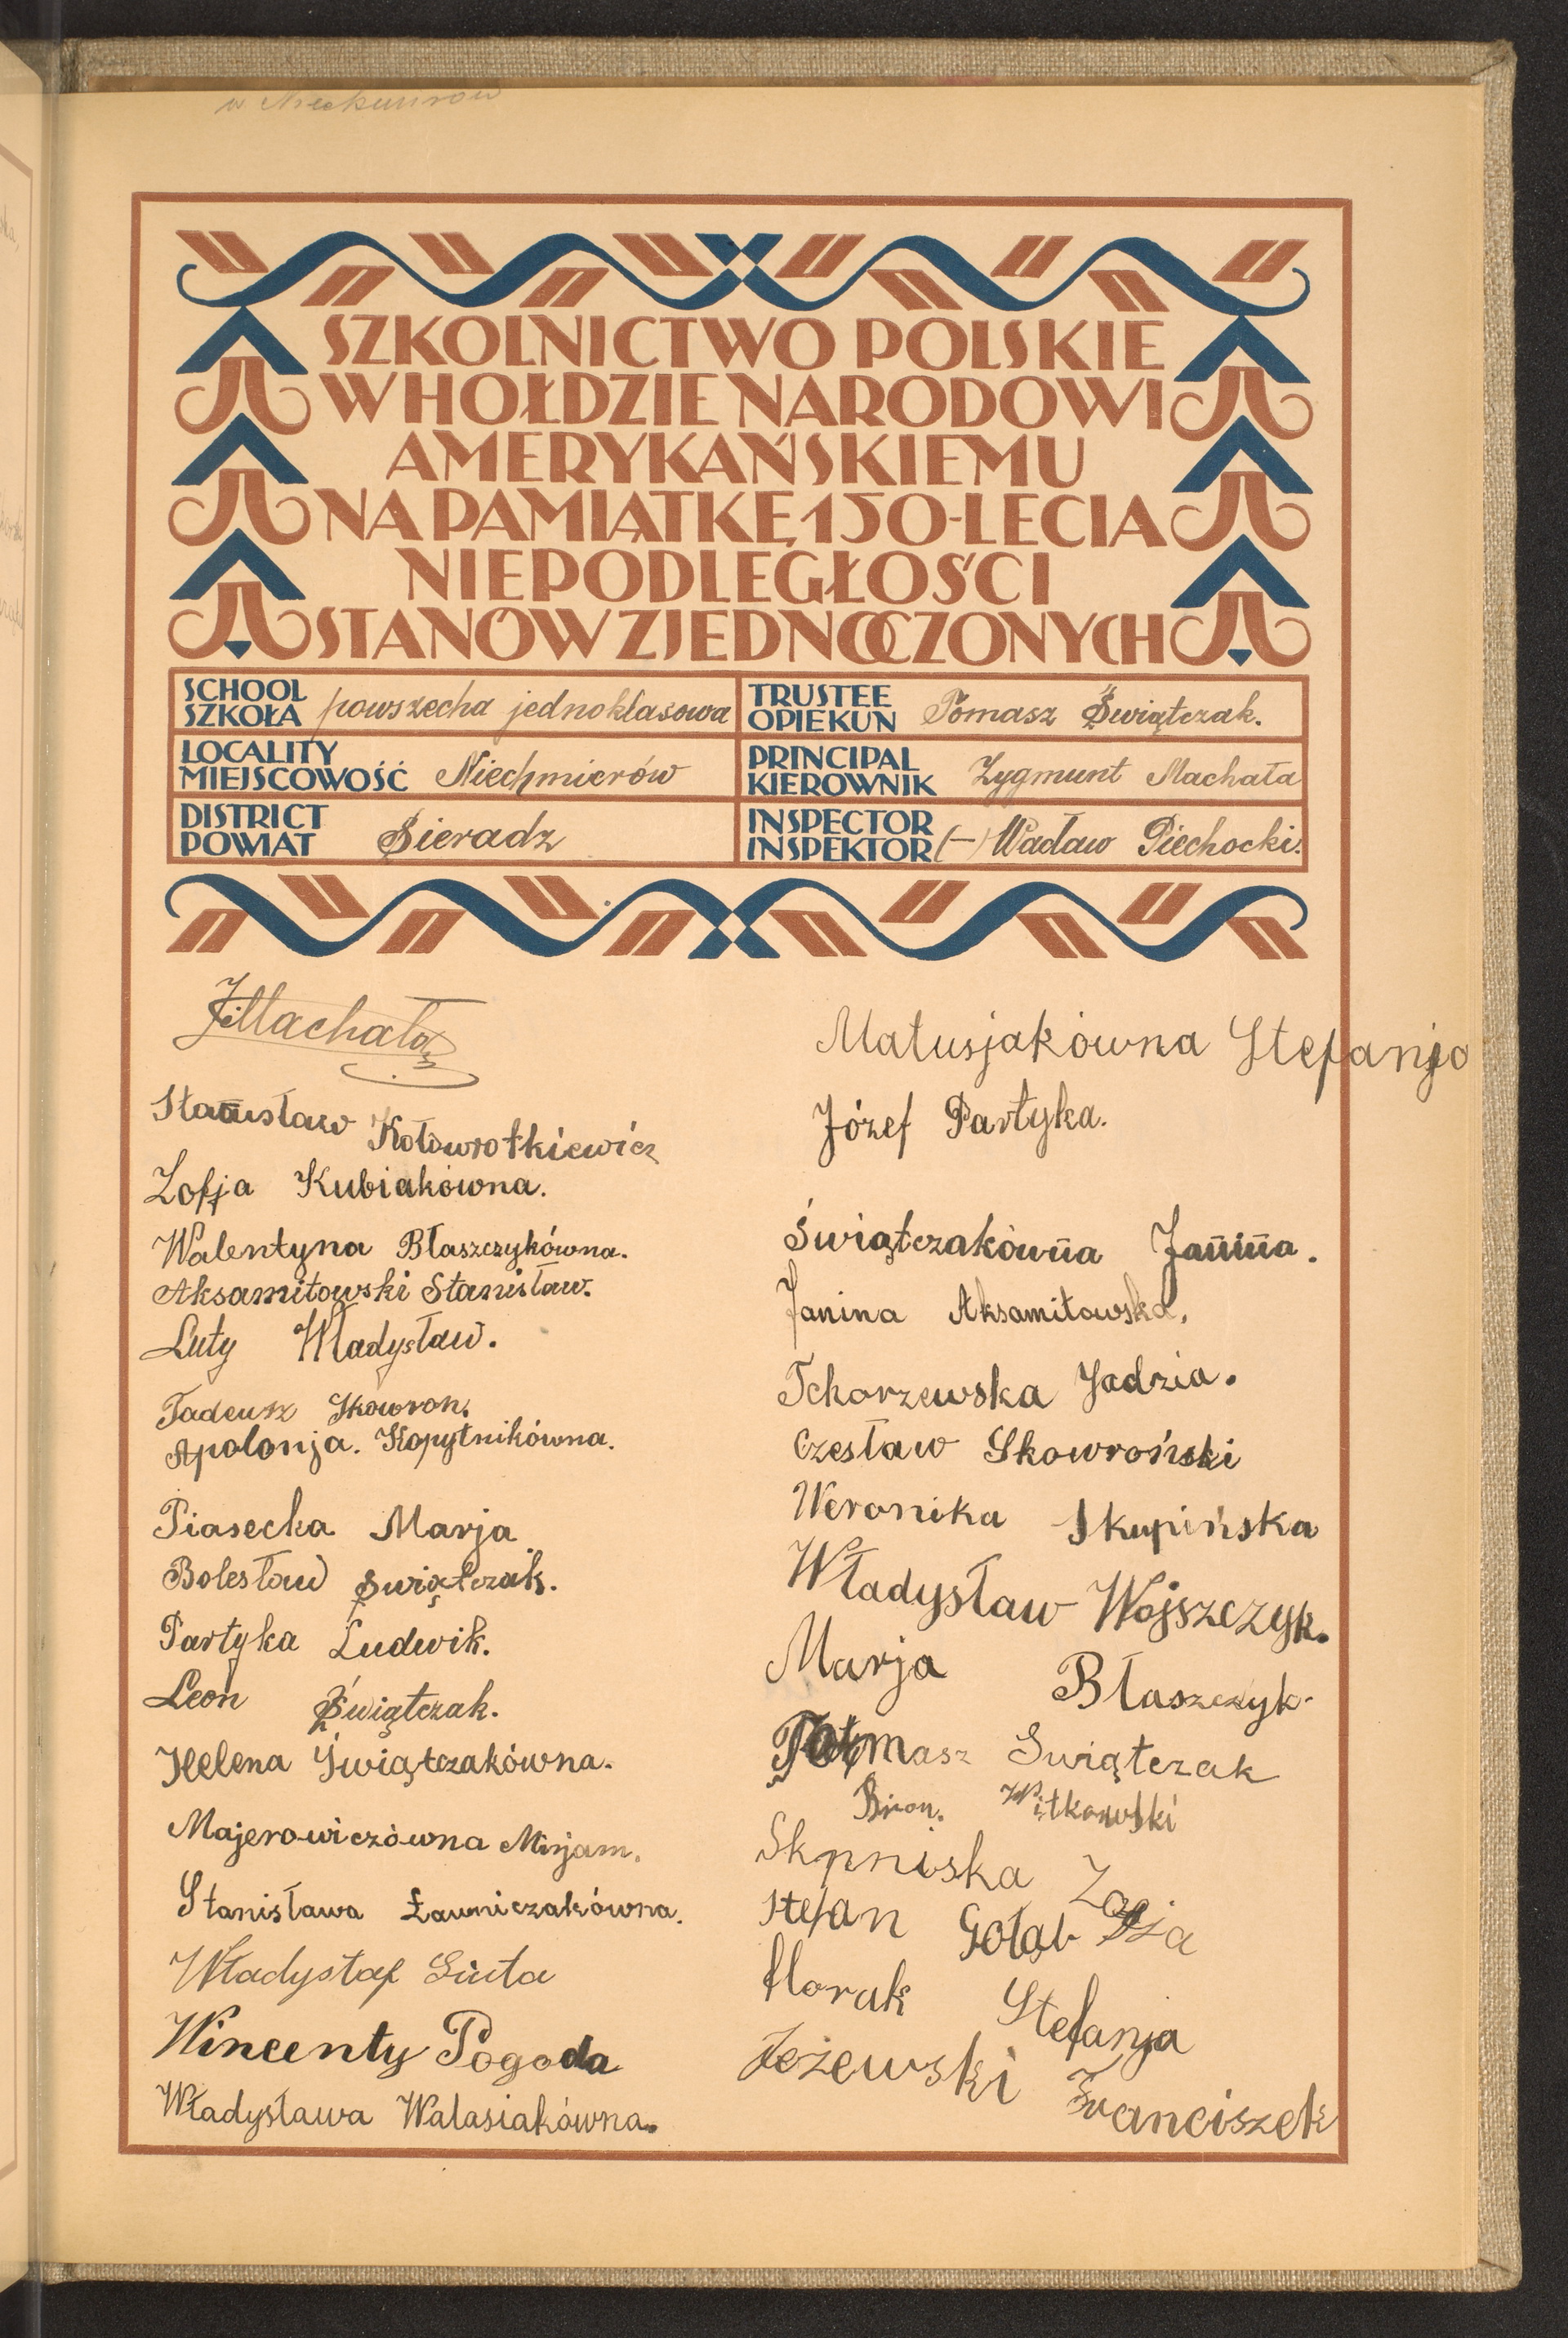 SZKOLNICTWO POLSKIE
W HOŁDZIE NARODOWI
AMERYKAŃSKIEMU
NA PAMIĄTKĘ 150-LECIA
NIEPODLEGŁOŚCI
STANÓW ZJEDNOCZONYCH
SCHOOL
SZKOŁA powszecha jednoklasowa
TRUSTEE
OPIEKUN Tomasz Świątczak.
LOCALITY
MIEJSCOWOŚĆ Niechmierów
PRINCIPAL
KIEROWNIK Zygmunt Machała
DISTRICT
POWIAT Sieradz
INSPECTOR
INSPEKTOR (-) Wacław Piechocki.
ZMachała
Stanisław Kołowrotkiewicz
Zofja Kubiakówna.
Walentyna Błaszczykówna.
Aksamitowski Stanisław.
Luty Władysław.
Tadeusz Skowron.
Apolonja. Kopytnikówna.
Piasecka Marja
Bolesław Świątczak.
Partyka Ludwik.
Leon Świątczak.
Helena Świątczakówna.
Majerowiczówna Mirjam.
Stanisława Ławniczakówna.
Władystaf Giuta
Wincenty Pogoda
Władysława Walasiakówna.
Matusjakówna Stefanja
Józef Partyka.
Świątczakówna Janina.
Janina Aksamitowska.
Tchorzewska Jadzia.
Czesław Skowroński
Weronika Skupińska
Władysław Wojszczyk.
Marja Błaszczyk.
Tomasz Swiątczak
Bron. Witkowski
Skpniska Zofja
Stefan Gołąb
Florak Stefanja
Jeżewski Franciszek